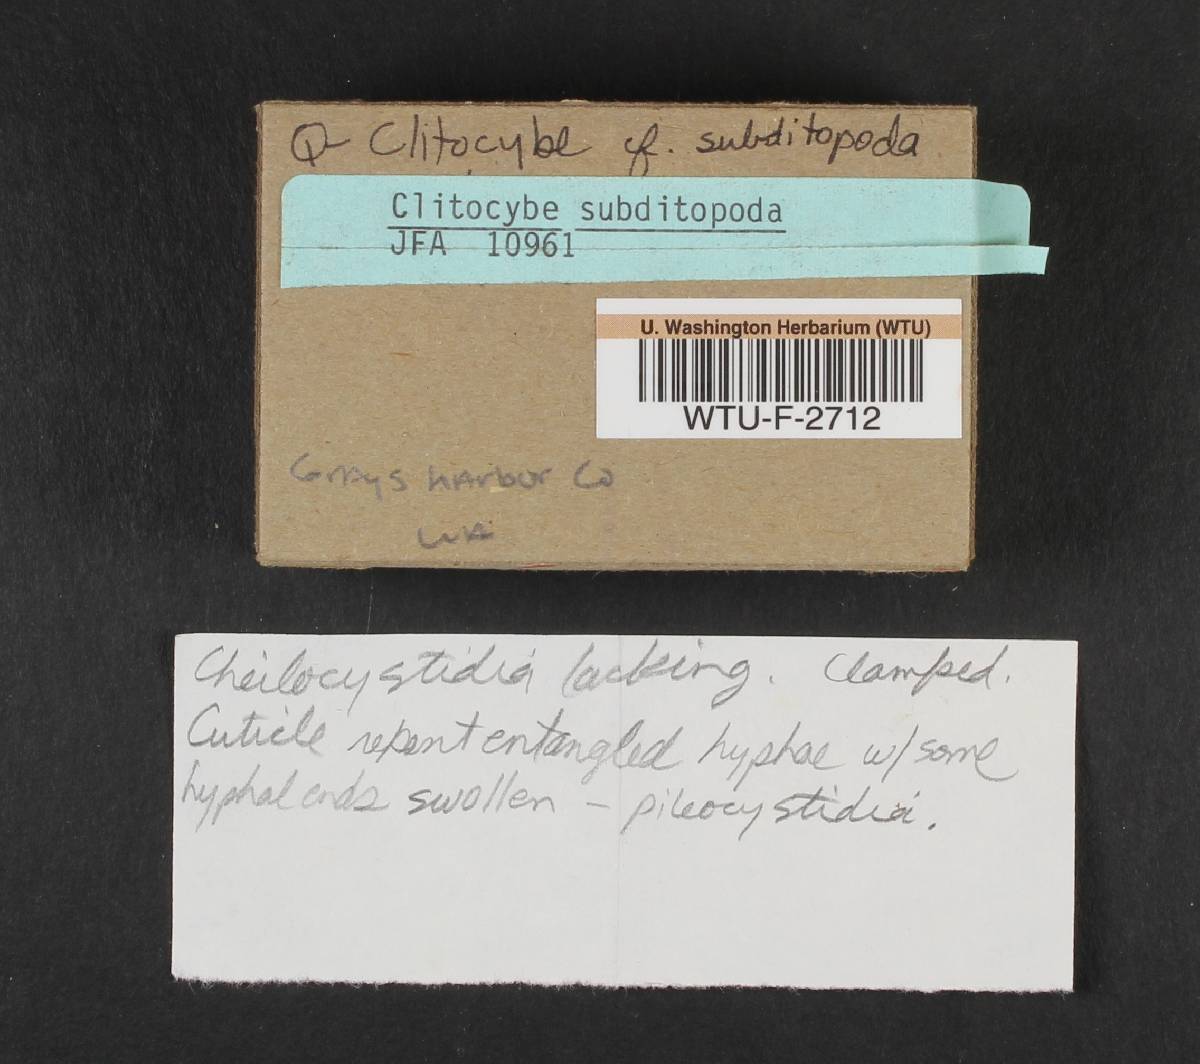 Q Clitocybe cf. subditopoda
Clitocybe subditopoda
JFA 10961
U. Washington Herbarium (WTU)
WTU-F-2712
Grays Harbor Co
WA
Cheilocystidia lacking. Clamped.
Cuticle repent entangled hyphae w/ some
hyphal ends swollen – pileocystidia.